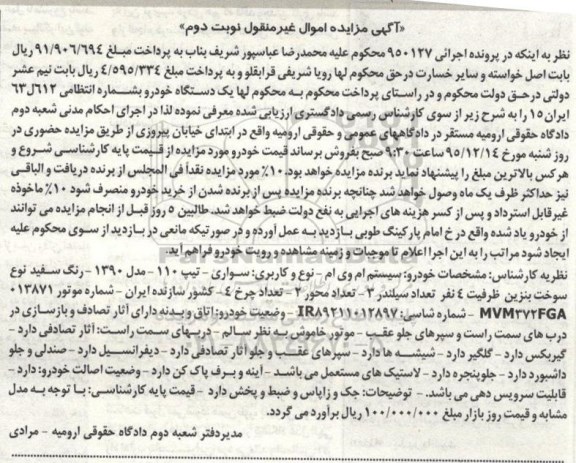 «آگهی مزایده اموال غیرمنقول نوبت دوم»
نظر به اینکه در پرونده اجرائی ۹۵۰۱۲۷ محکوم علیه محمدرضا عباسپور شریف بناب به پرداخت مبلغ ۹۱/۹۰۶/۶۹۴ ریال
بابت اصل خواسته و سایر خسارت درحق محکوم لها رویا شریفی قرابقلو و به پرداخت مبلغ ۴/۵۹۵/۳۳۴ ریال بابت نیم عشر
دولتی درحق دولت محکوم و در راستای پرداخت محکوم به محکوم لها یک دستگاه خودرو بشماره انتظامی ۶۱۲د۶۳
ایران ۱۵ را به شرح زیر از سوی کارشناس رسمی دادگستری ارزیابی شده معرفی نموده لذا در اجرای احکام مدنی شعبه دوم
دادگاه حقوقی ارومیه مستقر در دادگاههای عمومی و حقوقی ارومیه واقع در ابتدای خیابان پیروزی از طریق مزایده حضوری در
روز شنبه مورخ ۹۵/۱۲/۱۴ ساعت ۹:۳۰ صبح بفروش برساند قیمت خودرو مورد مزایده از قیمت پایه کارشناسی شروع و
هرکس بالاترین مبلغ را پیشنهاد نماید برنده مزایده خواهد بود. ۱۰٪ مورد مزایده نقداً فی المجلس از برنده دریافت و الباقی
نیز حداکثر ظرف یک ماه وصول خواهد شد چنانچه برنده مزایده پس از برنده شدن از خرید خودرو منصرف شود ۱۰٪ ماخوذه
غیرقابل استرداد و پس از کسر هزینه های اجرایی به نفع دولت ضبط خواهد شد. طالبین ۵ روز قبل از انجام مزایده می توانند
از خودرو یاد شده واقع در خ امام پارکینگ طوبی بازدید به عمل آورده و در صورتیکه مانعی در بازدید از سوی محکوم علیه
ایجاد شود مراتب را به این اجرا اعلام تا موجبات و زمینه مشاهده و رویت خودرو فراهم آید.
نظریه کارشناس: مشخصات خودرو: سیستم ام وی ام - نوع و کاربری: سواری - تیپ ۱۱۰ - مدل ۱۳۹۰ - رنگ سفید نوع
سوخت بنزین ظرفیت ۴ نفر تعداد سیلندر ۳ - تعداد محور ۲ - تعداد چرخ ۴ - کشور سازنده ایران - شماره موتور ۰۱۳۸۷۱
MVM۳۷۲FGA - شماره شاسی: IR۸۹۲۱۱۰۱۱۲۸۹۷ - وضعیت خودرو: اتاق و بدنه دارای آثار تصادف و بازسازی در
درب های سمت راست و سپرهای جلو عقب - موتور خاموش به نظر سالم - دربهای سمت راست: آثار تصادفی دارد -
گیربکس دارد - گلگیر دارد - شیشه ها دارد - سپرهای عقب و جلو آثار تصادفی دارد - دیفرانسیل دارد - صندلی و جلو
داشبورد دارد - جلوپنجره دارد - لاستیک های مستعمل می باشد - اینه و برف پاک کن دارد - وضعیت اصالت خودرو: دارد -
قابلیت سرویس دهی می باشد. - توضیحات: جک و زاپاس و ضبط و پخش دارد - قیمت پایه کارشناسی: با توجه به مدل
مشابه و قیمت روز بازار مبلغ ۱۰۰/۰۰۰/۰۰۰ ریال برآورد می گردد.
مدیر دفتر شعبه دوم دادگاه حقوقی ارومیه - مرادی